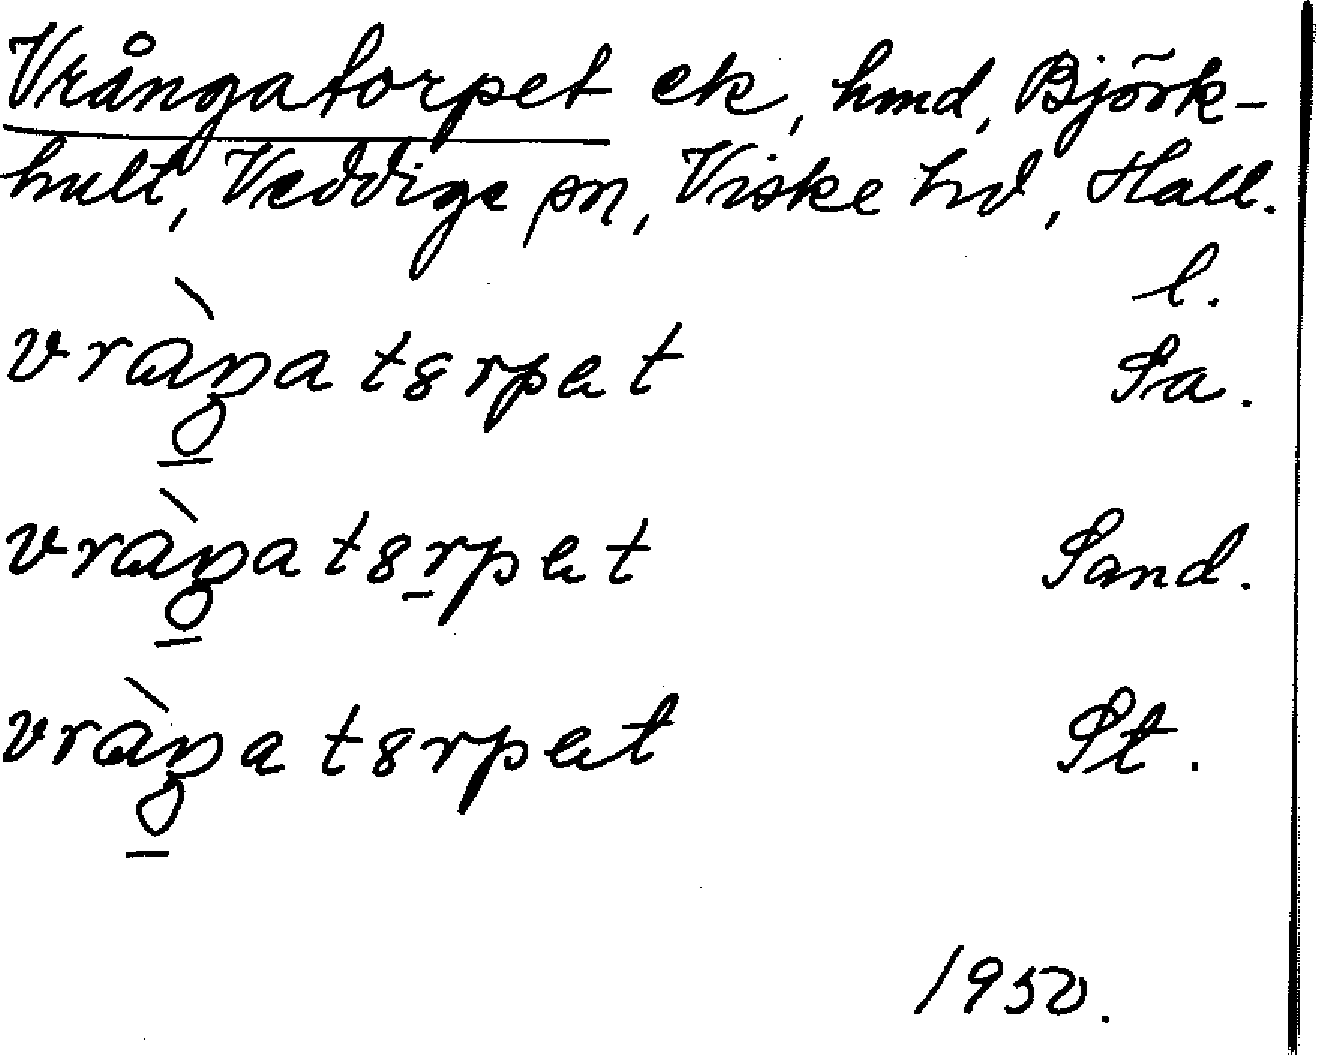 Vrångatorpet ek, hmd, Björk-
hult, Veddige sn, Viske hd, Hall.
l.
vràŋa tɞrpɐt Sa.
vràŋa tɞrpɐt Sand.
vràŋa tɞrpɐt St.
1950.